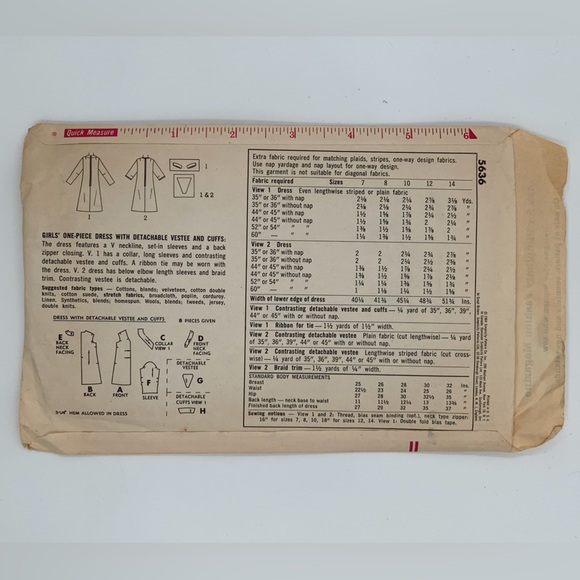 Quick Measure 1 2 3 4 5 6
5636
1 2
1
1 & 2
GIRLS' ONE-PIECE DRESS WITH DETACHABLE VESTEE AND CUFFS:
The dress features a V neckline, set-in sleeves and a back
zipper closing. V. 1 has a collar, long sleeves and contrasting
detachable vestee and cuffs. A ribbon tie may be worn with
the dress. V. 2 dress has below elbow length sleeves and braid
trim. Contrasting vestee is detachable.
Suggested fabric types — Cottons, blends; velveteen, cotton double
knits, cotton suede, stretch fabrics, broadcloth, poplin, corduroy.
Linen, Synthetics, blends; homespun. Wools, blends; tweeds, jersey,
double knits.
DRESS WITH DETACHABLE VESTEE AND CUFFS — 8 PIECES GIVEN
E
BACK
NECK
FACING
C
COLLAR
VIEW 1
D
FRONT
NECK
FACING
B
BACK
A
FRONT
F
SLEEVE
DETACHABLE
VESTEE
G
DETACHABLE
CUFFS VIEW 1
H
HEM ALLOWED IN DRESS
Extra fabric required for matching plaids, stripes, one-way design fabrics.
Use nap yardage and nap layout for one-way design.
This garment is not suitable for diagonal fabrics.
Fabric required Sizes 7 8 10 12 14
View 1 Dress Even lengthwise striped or plain fabric
35" or 36" with nap 2⅛ 2⅛ 2¼ 2⅞ 3⅛ Yds.
35" or 36" without nap 2⅛ 2⅛ 2¼ 2¾ 2⅞ "
44" or 45" with nap 1½ 1⅝ 1⅞ 2¼ 2½ "
44" or 45" without nap 1½ 1⅝ 1¾ 2 2¼ "
52" or 54" " " 1¼ 1⅜ 1⅝ 1⅞ 2 "
60" — " " 1¼ 1⅜ 1½ 1⅝ 1¾ "
View 2 Dress
35" or 36" with nap 2 2 2¼ 2¾ 2⅞ "
35" or 36" without nap 2 2 2¼ 2½ 2⅝ "
44" or 45" with nap 1⅜ 1½ 1⅞ 2¼ 2½ "
44" or 45" without nap 1⅜ 1½ 1⅝ 1⅞ 2⅛ "
52" or 54" " " 1¼ 1¼ 1⅜ 1⅝ 1¾ "
60" — " " 1 1⅛ 1¼ 1½ 1⅝ "
Width of lower edge of dress 40¼ 41¾ 45¼ 48¾ 51¾ Ins.
View 1 Contrasting detachable vestee and cuffs — ¼ yard of 35", 36", 39",
44" or 45" with or without nap.
View 1 Ribbon for tie — 1½ yards of 1½" width.
View 2 Contrasting detachable vestee Plain fabric (cut lengthwise) — ¼ yard
of 35", 36", 39", 44" or 45" with or without nap.
View 2 Contrasting detachable vestee Lengthwise striped fabric (cut cross-
wise) — ¼ yard of 35", 36", 39", 44" or 45" with or without nap.
View 2 Braid trim — 1½ yards of ¼" width.
STANDARD BODY MEASUREMENTS
Breast 25 26 28 30 32 Ins.
Waist 22½ 23 24 25 26 "
Hip 27 28 30 32½ 35 "
Back length — neck base to waist 11 11½ 12¼ 13 13¾ "
Finished back length of dress 27 29 32 35 37 "
Sewing notions — View 1 and 2: Thread, bias seam binding (opt.), neck type zipper-
16" for sizes 7, 8, 10, 18" for sizes 12, 14. View 1: Double fold bias tape.